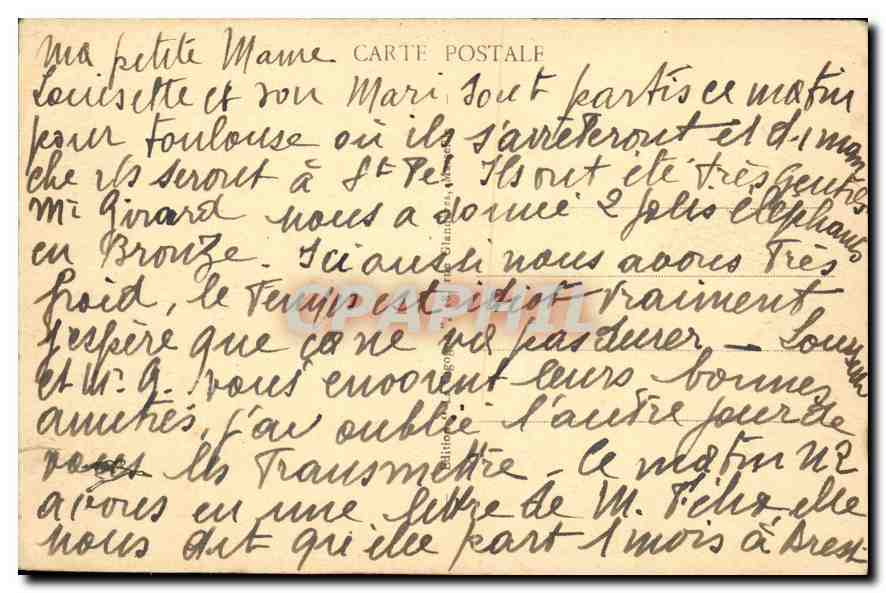 ma petite Mame CARTE POSTALE
Louisette et son Mari sont partis ce matin
pour Toulouse où ils s'arrêteront et diman
che ils seront à St Pé. Ils ont été très gentils
Mr Girard nous a donné 2 jolis éléphants
en Bronze. Ici aussi nous avons Très
froid, le Temps est idiot vraiment
CPAPHIL
j'espère que ça ne va pas durer – Louisette
et Mr. G. vous envoient leurs bonnes
amitiés, j'ai oublié l'autre jour de
les Transmettre – Ce matin ns
avons eu une lettre de M. elle
nous dit qu'elle part 1 mois à Brest